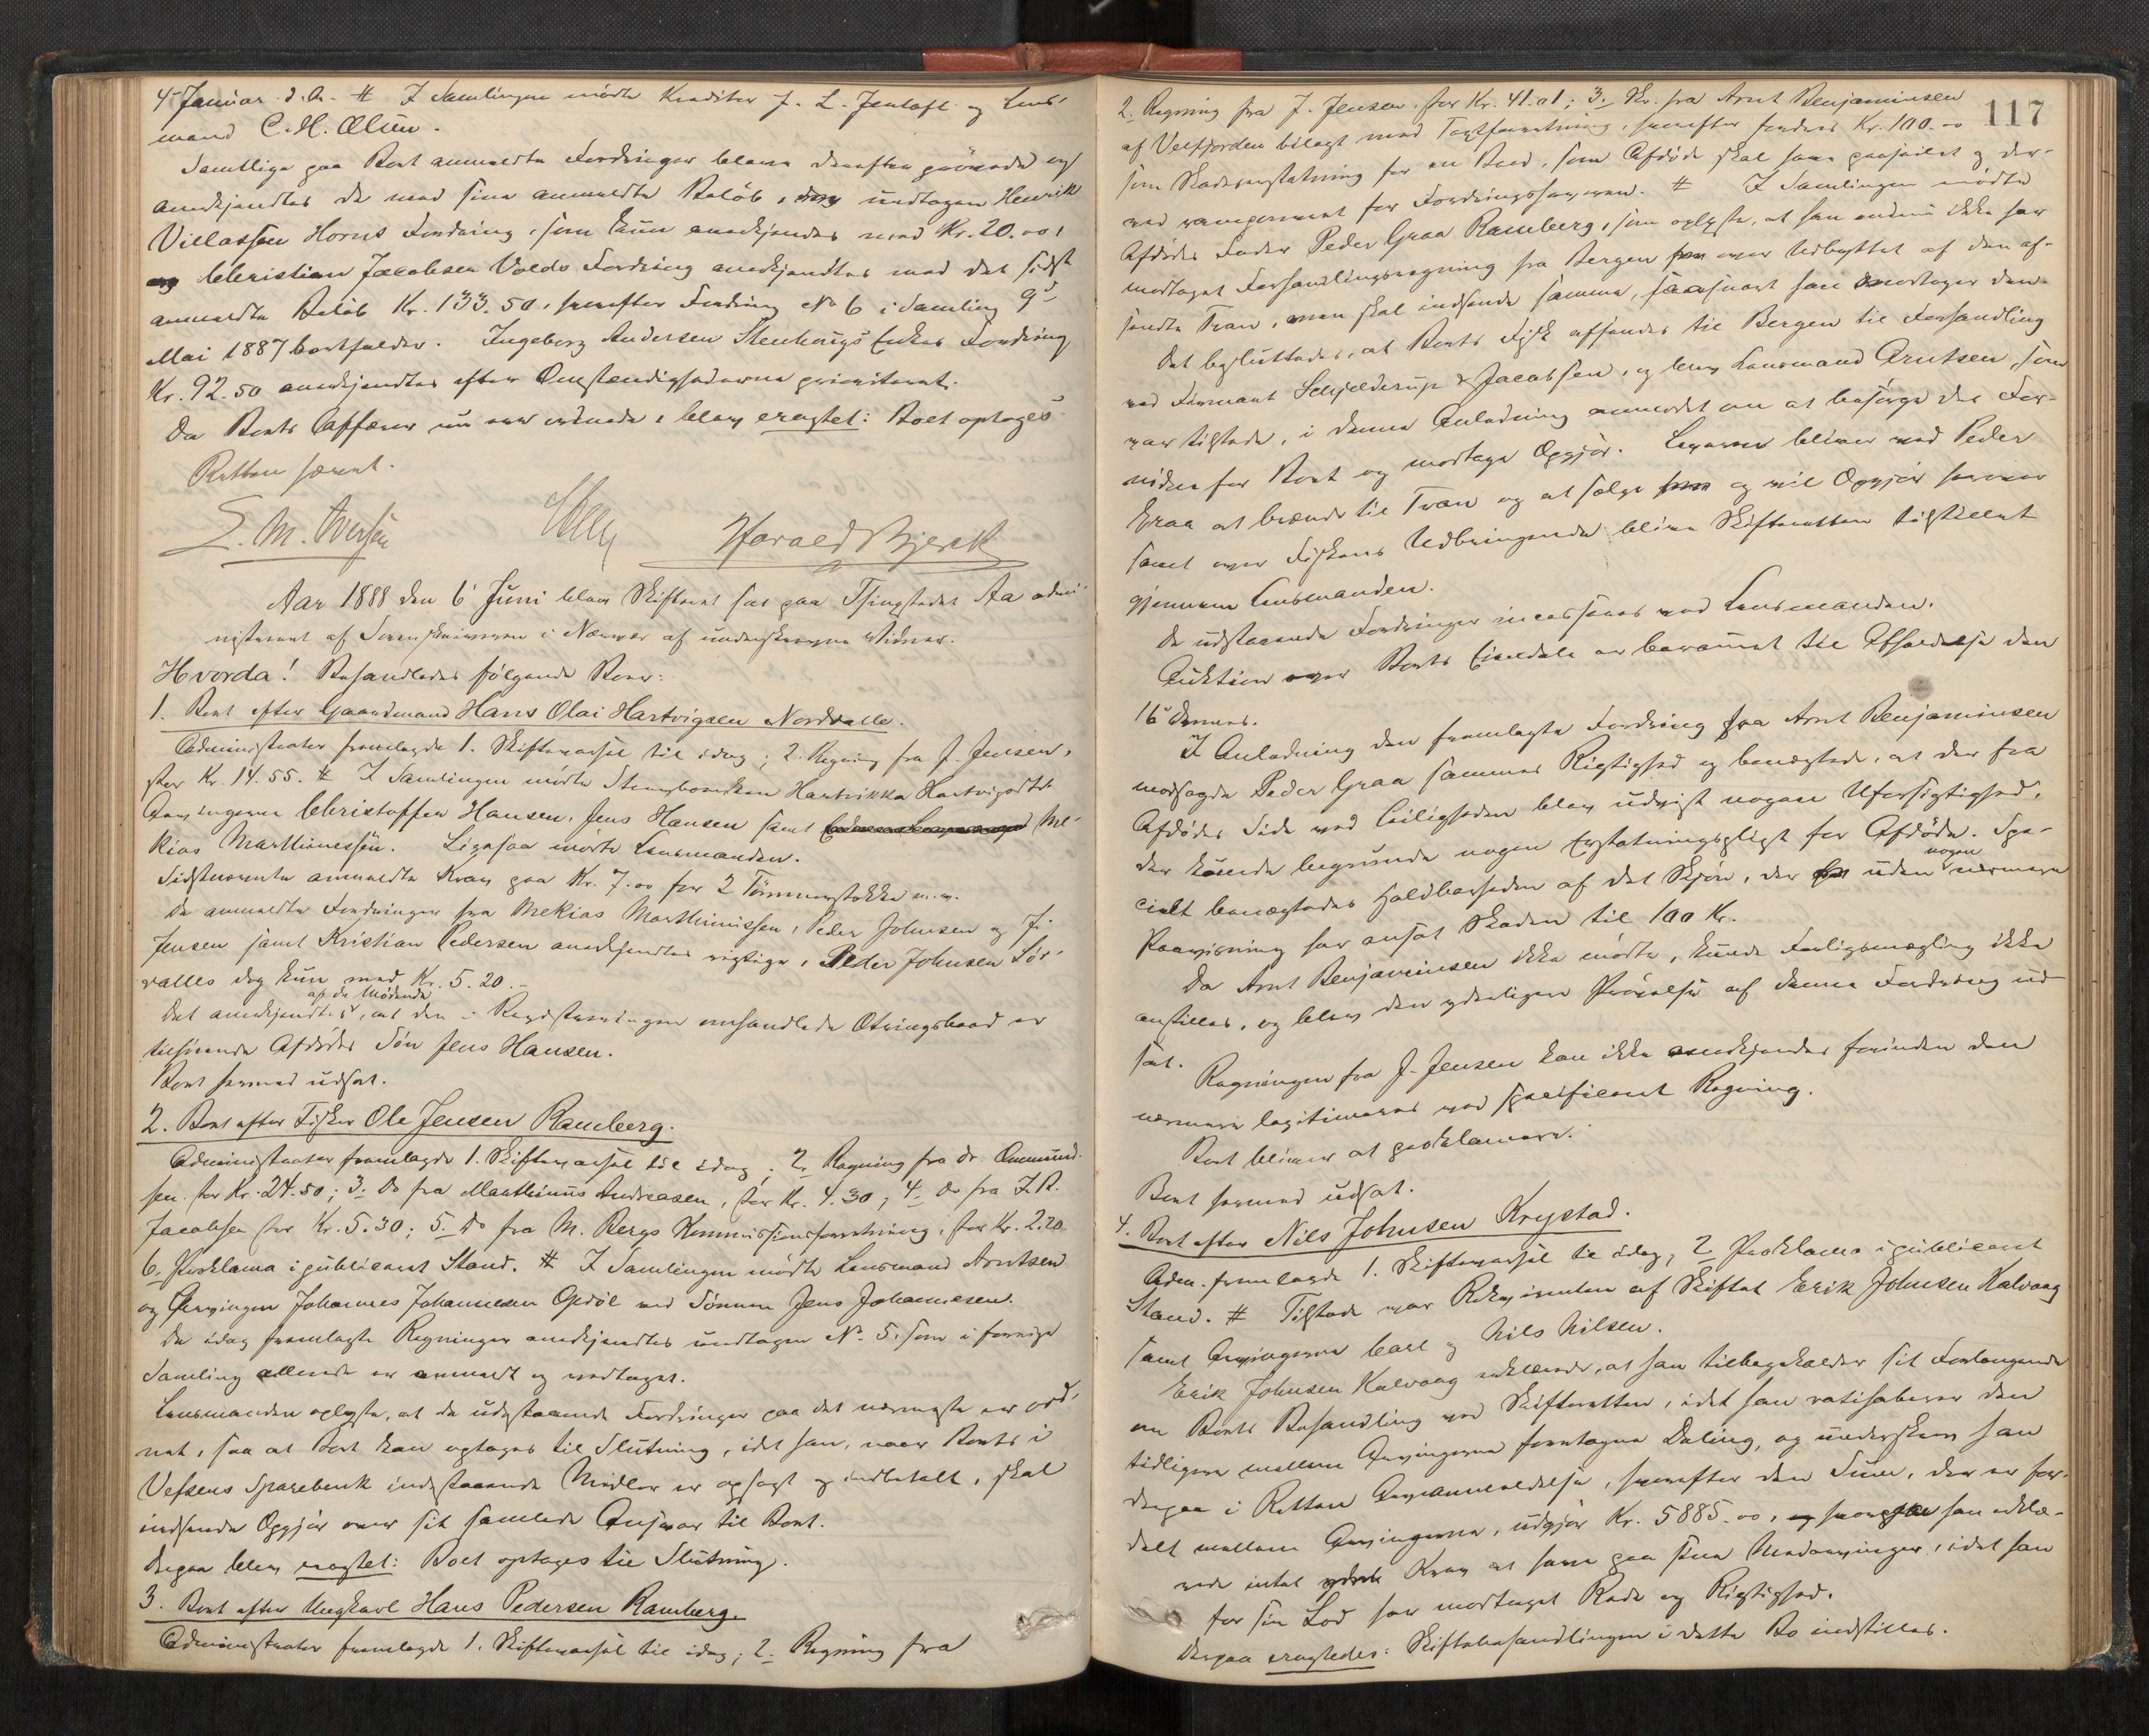 4' Januar d. A. # I Samlingen mødte Kreditor J. L. Jentoft og Lens-
mand C. H. Olsen.
Samtlige paa Boet anmeldte Fordringer bleve derefter prøvede og
anerkjendtes de med sine anmeldte Beløb, undtagen Henrik
Villassen Horns Fordring, som kun anerkjendes med Kr. 20.00,
Christian Jacobsen Volds Fordring anerkjendtes med det sidst
anmeldte Beløb Kr. 133.50, hvorefter Fordring No 6 i Samling 9'
Mai 1887 bortfalder. Ingeborg Andersen Stenhaugs Enkes Fordring
Kr. 92.50 anerkjendtes efter Omstændighederne prioriteret.
Da Boets Affærer nu var ordnede, blev eragtet: Boet optages
Retten hævet.
S. M. Iversen Harald Bjerck
Aar 1888 den 6' Juni blev Skifteret sat paa Thingstedet Aa admi-
nistreret af Sorenskriveren i Nærvær af underskrevne Vidner.
Hvorda! Behandledes følgende Boer:
1. Boet efter Gaardmand Hans Olai Hartvigsen Nordvalle.
Administrator fremlagde 1. Skiftevarsel til idag; 2. Regning fra J. Jensen,
stor Kr. 14.55. # I Samlingen mødte Hartvikka Hartvigsdtr
Arvingerne Christoffer Hansen, Jens Hansen samt Me-
kias Marthinessen. Ligesaa mødte Lensmanden.
Sidstnævnte anmeldte Krav paa Kr. 7.00 for 2 Tømmerstokke m.v.
De anmeldte Fordringer fra Mekias Marthinissen, Peder Johnsen og J.
Jensen samt Kristian Pedersen anerkjendtes rigtige, Peder Johnsen Sør-
valles dog kun med Kr. 5.20.-
Det anerkjendtes af de Mødende, at den i Registreringen omhandlede Otringsbaad er
tilhørende Afdødes Søn Jens Hansen.
Boet hermed udsat.
2. Boet efter Fisker Ole Jensen Ramberg.
Administrator fremlagde 1. Skiftevarsel til idag; 2. Regning fra dr. Ommund-
sen stor Kr. 24.50; 3. Do fra Marthinus Andreasen, stor Kr. 4.30; 4. Do fra J. R.
Jacobsen stor Kr. 5.30; 5. Do fra M. Bergs Kommissionsforretning, stor Kr. 2.20
6. Proklama i publiceret Stand. # I Samlingen mødte Lensmand Arntsen
og Arvingen Johannes Johannesen Opdøl ved Sønnen Jens Johannesen.
De idag fremlagte Regninger anerkjendtes undtagen No. 5, som i forrige
Samling allerede er anmeldt og vedtaget.
Lensmanden oplyste, at de udestaaende Fordringer paa det nærmeste var ord-
net, saa at Boet kan optages til Slutning, idet han, naar Boets i
Vefsens Sparebank indestaaende Midler er opsagt og indbetalt, skal
indsende Opgjør over sit samlede Ansvar til Boet.
Derpaa blev eragtet: Boet optages til Slutning.
3. Boet efter Ungkarl Hans Pedersen Ramberg.
Administrator fremlagde 1. Skiftevarsel til idag; 2. Regning fra
117
2. Regning fra J. Jensen, stor Kr. 41.01; 3. Kr. fra Arnt Benjaminsen
af Velfjorden bilagt med Taxtforretning, hvorefter fordres Kr. 100.00
som Skadeserstatning for en Baad, som Afdøde skal have paaseilet og der-
ved ramponeret for Fordringshaveren. # I Samlingen mødte
Afdødes Fader Peder Graa Ramberg, som oplyste, at han endnu ikke har
modtaget Forhandlingsregning fra Bergen over Udbyttet af den af-
sendte Tran, men skal indsende samme, saasnart han modtager den.
Det besluttedes, at Boets Fisk afsendes til Bergen til Forhandling
ved Firmaet Schjelderup & Jacobsen, og blev Lensmand Arntsen, som
var tilstede, i denne Anledning anmodet om at besørge det For-
nødne for Boet og modtage Opgjør. Leveren bliver ved Peder
Graa at brænde til Tran og at sælge og vil Opgjør herover
samt over Fiskens Udbringende blive Skifteretten tilstillet
gjennem Lensmanden.
De udstaaende Fordringer incasseres ved Lensmanden.
Auktion over Boets Eiendele er berammet til Afholdelse den
16' dennes.
I Anledning den fremlagte Fordring fra Arnt Benjaminsen
modsagde Peder Graa sammes Rigtighed og benægtede, at der fra
Afdødes Side ved Leiligheden blev udvist nogen Uforsigtighed,
der kunde begrunde nogen Erstatningspligt for Afdøde. Spe-
cielt benægtedes Holdbarheden af det Skjøn, der uden nogen nærmere
Paavisning har ansat Skaden til 100 Kr.
Da Arnt Benjaminsen ikke mødte, kunde Forligsmægling ikke
anstilles, og blev den yderligere Prøvelse af denne Fordring ud-
sat.
Regningen fra J. Jensen kan ikke anerkjendes forinden den
nærmere legitimeres ved specificeret Regning.
Boet bliver at proklamere.
Boet hermed udsat.
4. Boet efter Nils Johnsen Krystad.
Adm. fremlagde 1. Skiftevarsel til idag, 2 Proklama i publiceret
Stand. # Tilstede var Rekvirenten af Skiftet Erik Johnsen Kalvaag
samt Arvingerne Carl og Nils Nilsen.
Erik Johnsen Kalvaag erklærede, at han tilbagekalder sit Forlangende
om Boets Behandling ved Skifteretten, idet han ratihaberer den
tidligere mellem Arvingerne foretagne Deling, og underskrev han
derpaa i Retten Arveanmeldelse, hvorefter den Sum, der er for-
delt mellem Arvingerne, udgjør Kr. 5885.00, hvorpaa han erklæ-
rede intet Krav at have paa sine Medarvinger, idet han
for sin Lod har modtaget Rede og Rigtighed.
Derpaa eragtedes: Skiftebehandlingen i dette Bo indstilles.